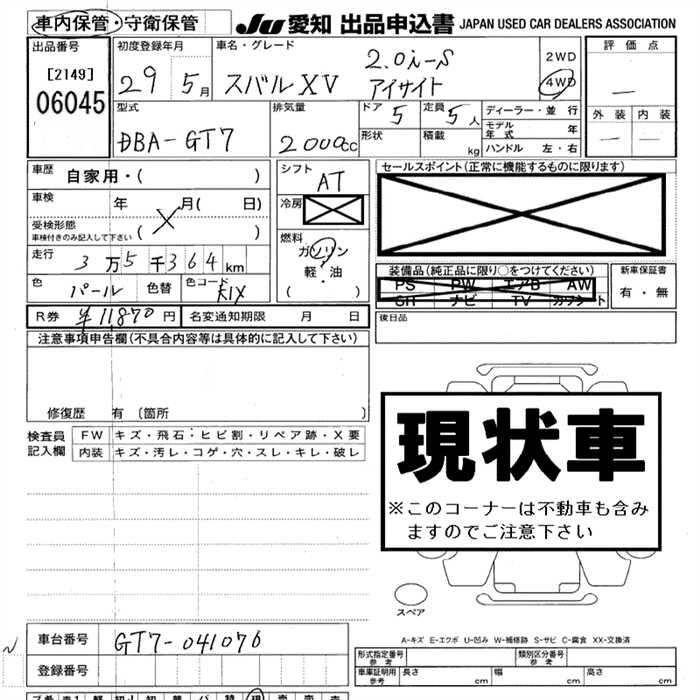 車内保管・守衛保管 JU 愛知 出品申込書 JAPAN USED CAR DEALERS ASSOCIATION
出品番号 初度登録年月 車名・グレード 2WD 評価点
[2149] 29 5月 スバルXV 2.0i-S アイサイト 4WD
06045
型式 排気量 ドア 5 定員 5人 ディーラー・並行 外装 内装
DBA-GT7 2000cc 形状 積載 kg モデル年式 年
ハンドル 左・右
車歴 自家用・( ) シフト AT セールスポイント(正常に機能するものに限ります)
車検 年 月( 日) 冷房
受検形態
車検付きのみ記入して下さい ( ) X
燃料
走行 3万5千364km ガソリン 装備品(純正品に限り○をつけてください) 新車保証書
軽・油 PS PW エアB AW 有・無
色 パール 色替 色コード K1X ( ) ナビ TV
R券 ¥11870円 名変通知期限 月 日 後日品
注意事項申告欄(不具合内容等は具体的に記入して下さい)
修復歴 有 (箇所 )
検査員 FW キズ・飛石・ヒビ割・リペア跡・X要
記入欄 内装 キズ・汚レ・コゲ・穴・スレ・キレ・破レ
現状車
※このコーナーは不動車も含み
ますのでご注意下さい
スペア
A-キズ E-エクボ U-凹み W-補修跡 S-サビ C-腐食 XX-交換済
車台番号 GT7-041076
登録番号
形式指定番号 参考 類別区分番号 参考
車庫証明用 参考 長さ cm 幅 cm 高さ cm